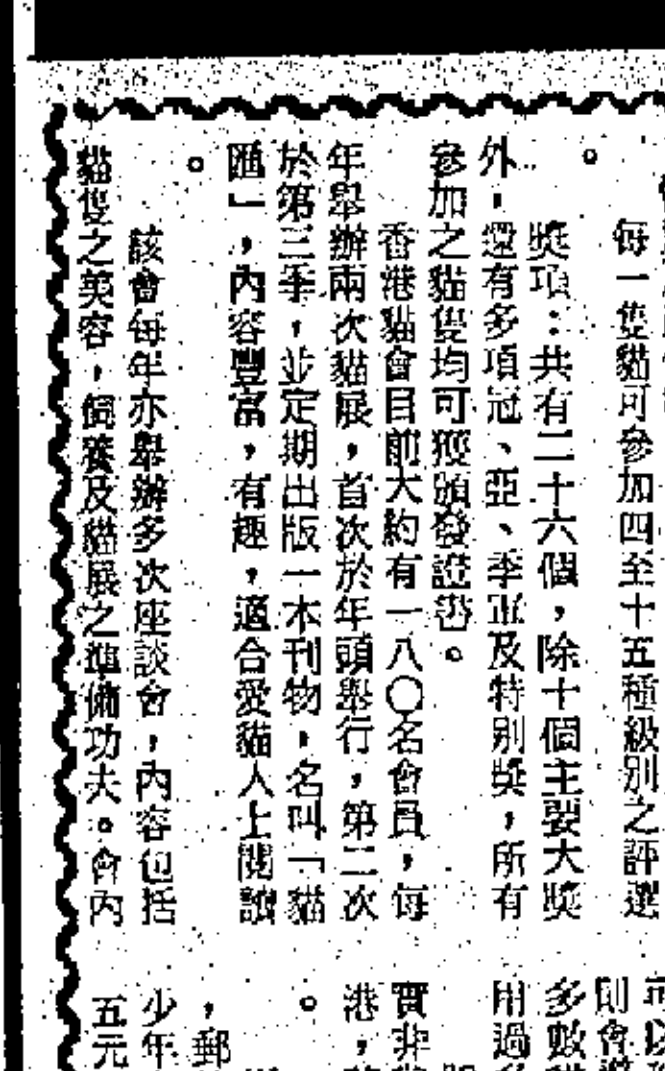 每一隻貓可參加四至十五種級別之評選
。
獎項：共有二十六個，除十個主要大獎
外，還有多項冠、亞、季軍及特別獎，所有
參加之貓隻均可獲頒發證書。
香港貓會目前大約有一八〇名會員，每
年舉辦兩次貓展，首次於年頭舉行，第二次
於第三季，並定期出版一本刊物，名叫「貓
匯」，內容豐富，有趣，適合愛貓人士閱讀
。
該會每年亦舉辦多次座談會，內容包括
貓隻之美容，飼養及貓展之準備功夫。會內
可以
則會
多數
用過
實非
港，
。
，郵
少年
五元